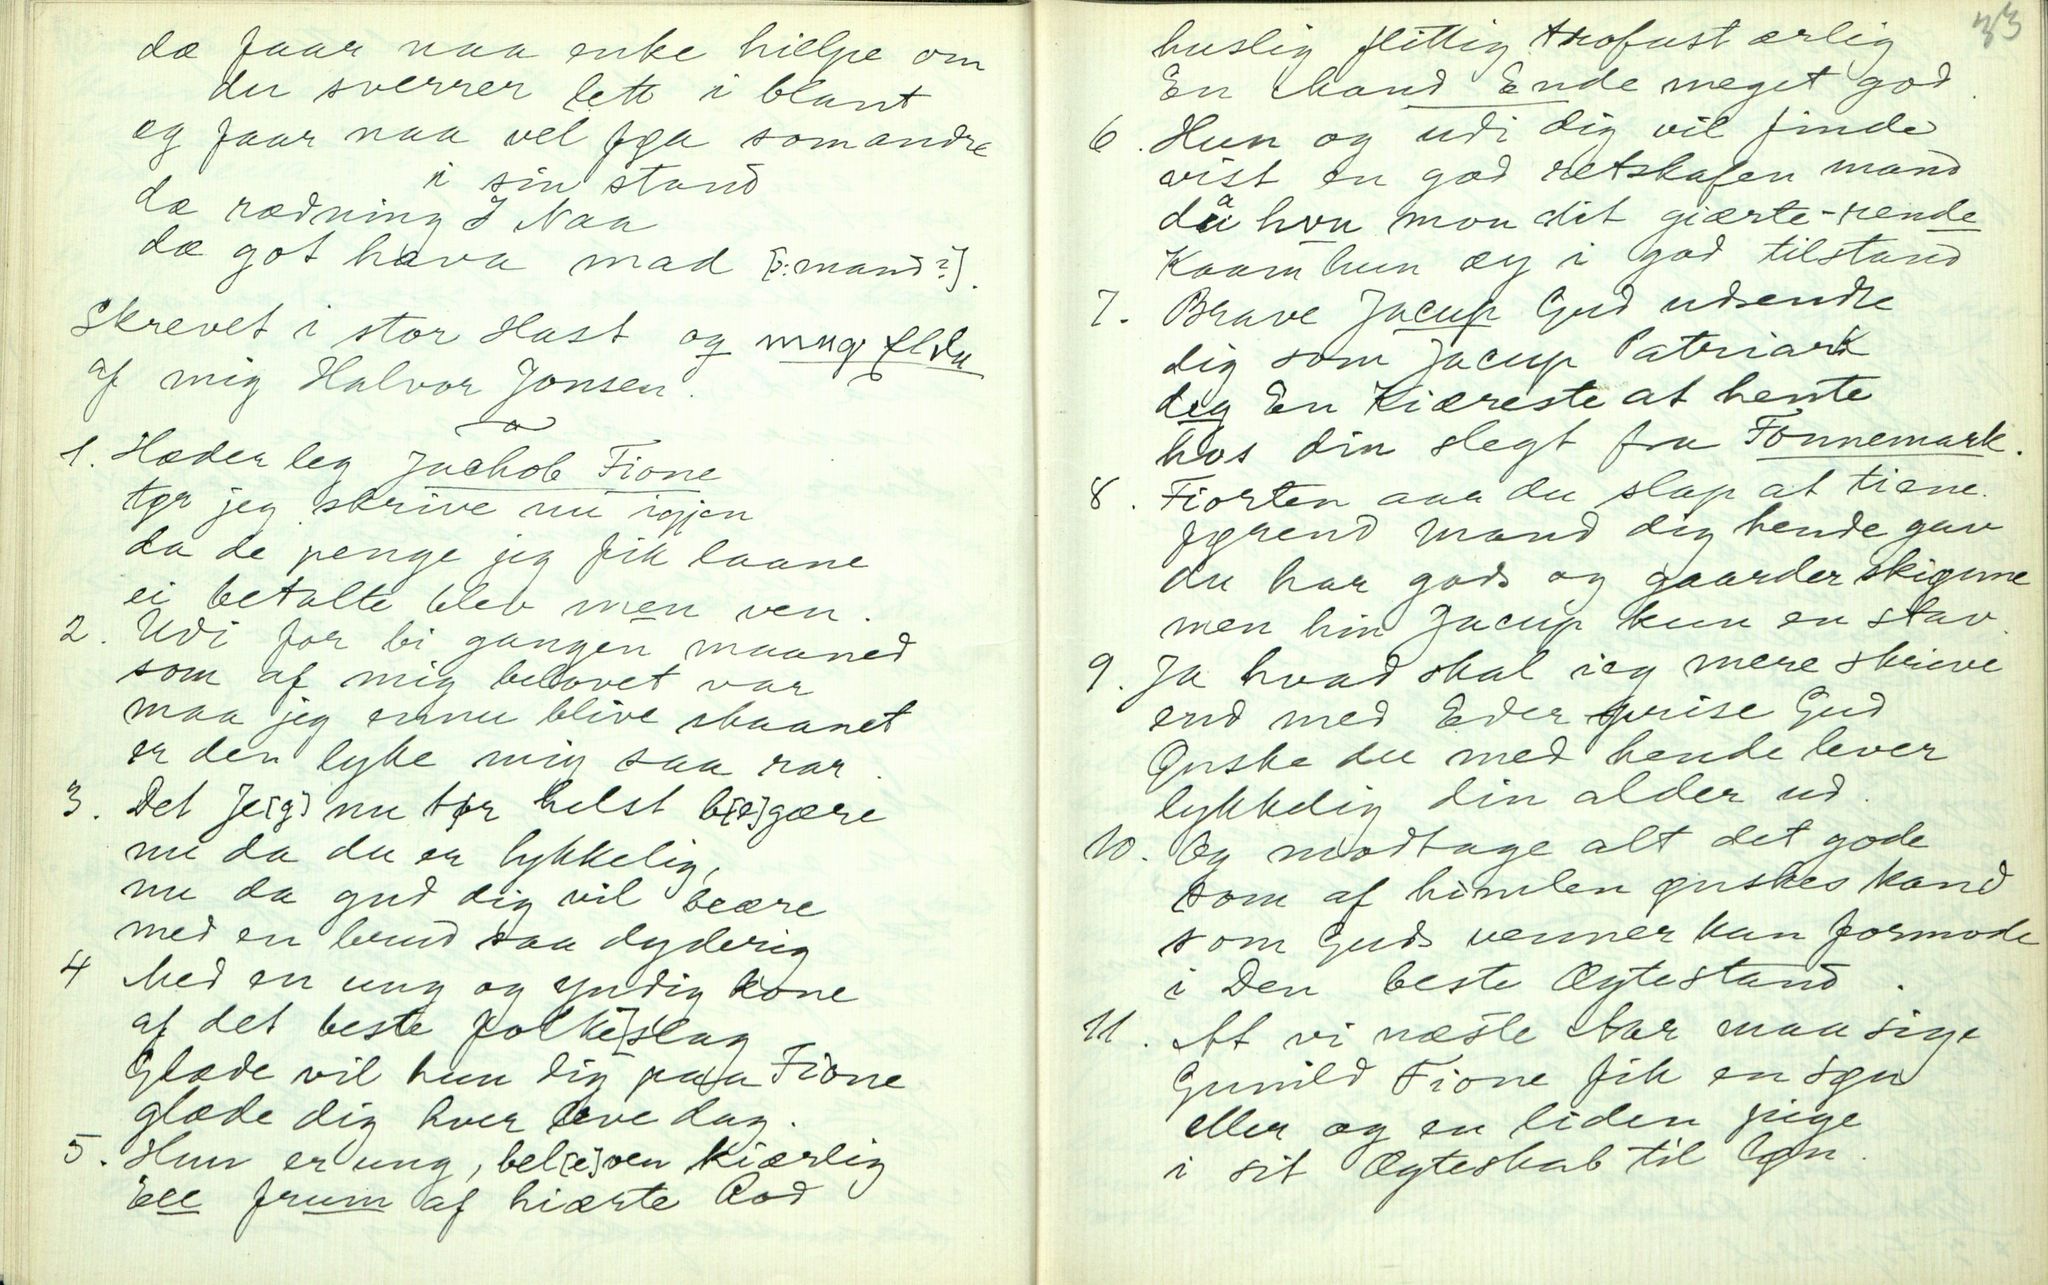 dæ faar naa enke hielpe om
du sverrer lett i blant
eg faar naa vel fga som andre
i sin stand
da rædning I Naa
dæ got hava mad [ɔ: mand?].
Skrevet i stor Hast og
af mig Halvor Jonsen.
1. Hæderleg Jachob Fione
tør jeg skrive nu igjen
da de penge jeg fik laane
ei betalte blev men ven.
2. Udi for bi gangen maaned
som af mig belovet var
maa jeg ennu blive skaanet
er den lyke mig saa rar.
3. Det Je[g] nu tør helst b[e]gære
nu da du er lykkelig,
nu da gud dig vil beære
med en brud saa dyderig
4 Med en ung og yndig kone
af det beste folke[slag
Glade vil hun dig paa Fione
glæde dig hver leve dag.
5. Hun er ung, bel[e]ven kiærlig
Ell frum af hiærte Rod
33
huslig flittig trofast ærlig
En Mand Ende meget god.
6. Hun og udi dig vil finde
vist en god retskafen mand
då hvu mon dit giærte-rende
Kaam hun æy i god tilstand
7. Brave Jacup Gud udsendte
dig som Jacup Patriark
deg En Kiæreste at hente
hos din slegt fra Fonnemark.
8. Fiorten aar du slap at tiene.
førend Mand dig hende gav
du har gods og gaarder skiønne
men hin Jacup kun en stav.
9. Ja hvad skal ieg mere skrive
end med Eder prise Gud
Ønske du med hende lever
lykkelig din alder ud.
10. Og modtage alt det gode
som af himlen ønskes kand
som Guds venner kan formode
i Den beste Ægtestand.
11. At vi næste Aar maa sige
Gunild Fione fik en søn
eller og en liden pige
i sit Ægteskab til Løn.